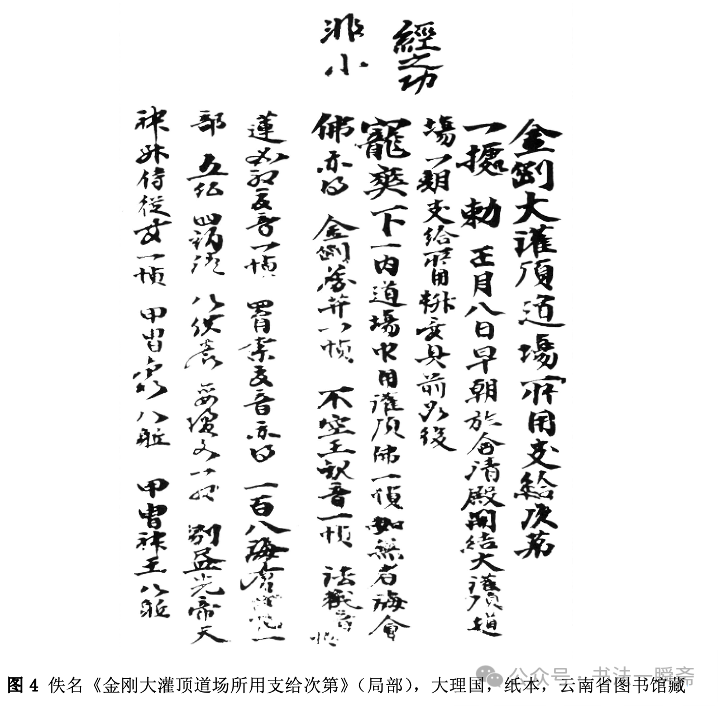 經之功
非小
金剛大灌頂道場所用支給次第
一據 勅 正月八日早朝於會清殿開結大灌頂道
場一期支給所用排文具前如後
寵奘下一內道場中用灌頂佛一幀如無者海會
佛亦得 金剛薩埵一幀 不空王觀音一幀 法
蓮 觀音一幀 罥索觀音亦得 一百八
部 五 四 八供養 一 別 光帝天
神 侍從女一幀 甲胄 八軀 甲胄神王八軀
图4 佚名《金刚大灌顶道场所用支给次第》（局部），大理国，纸本，云南省图书馆藏
公众号·书法一瞬斋